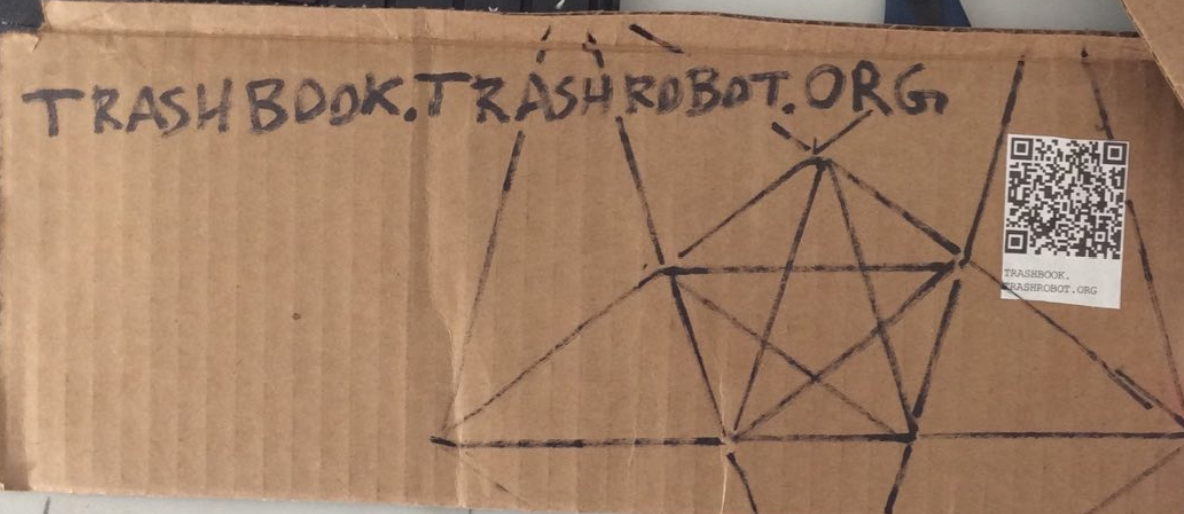 TRASHBOOK.TRASHROBOT.ORG
TRASHBOOK.
TRASHROBOT.ORG